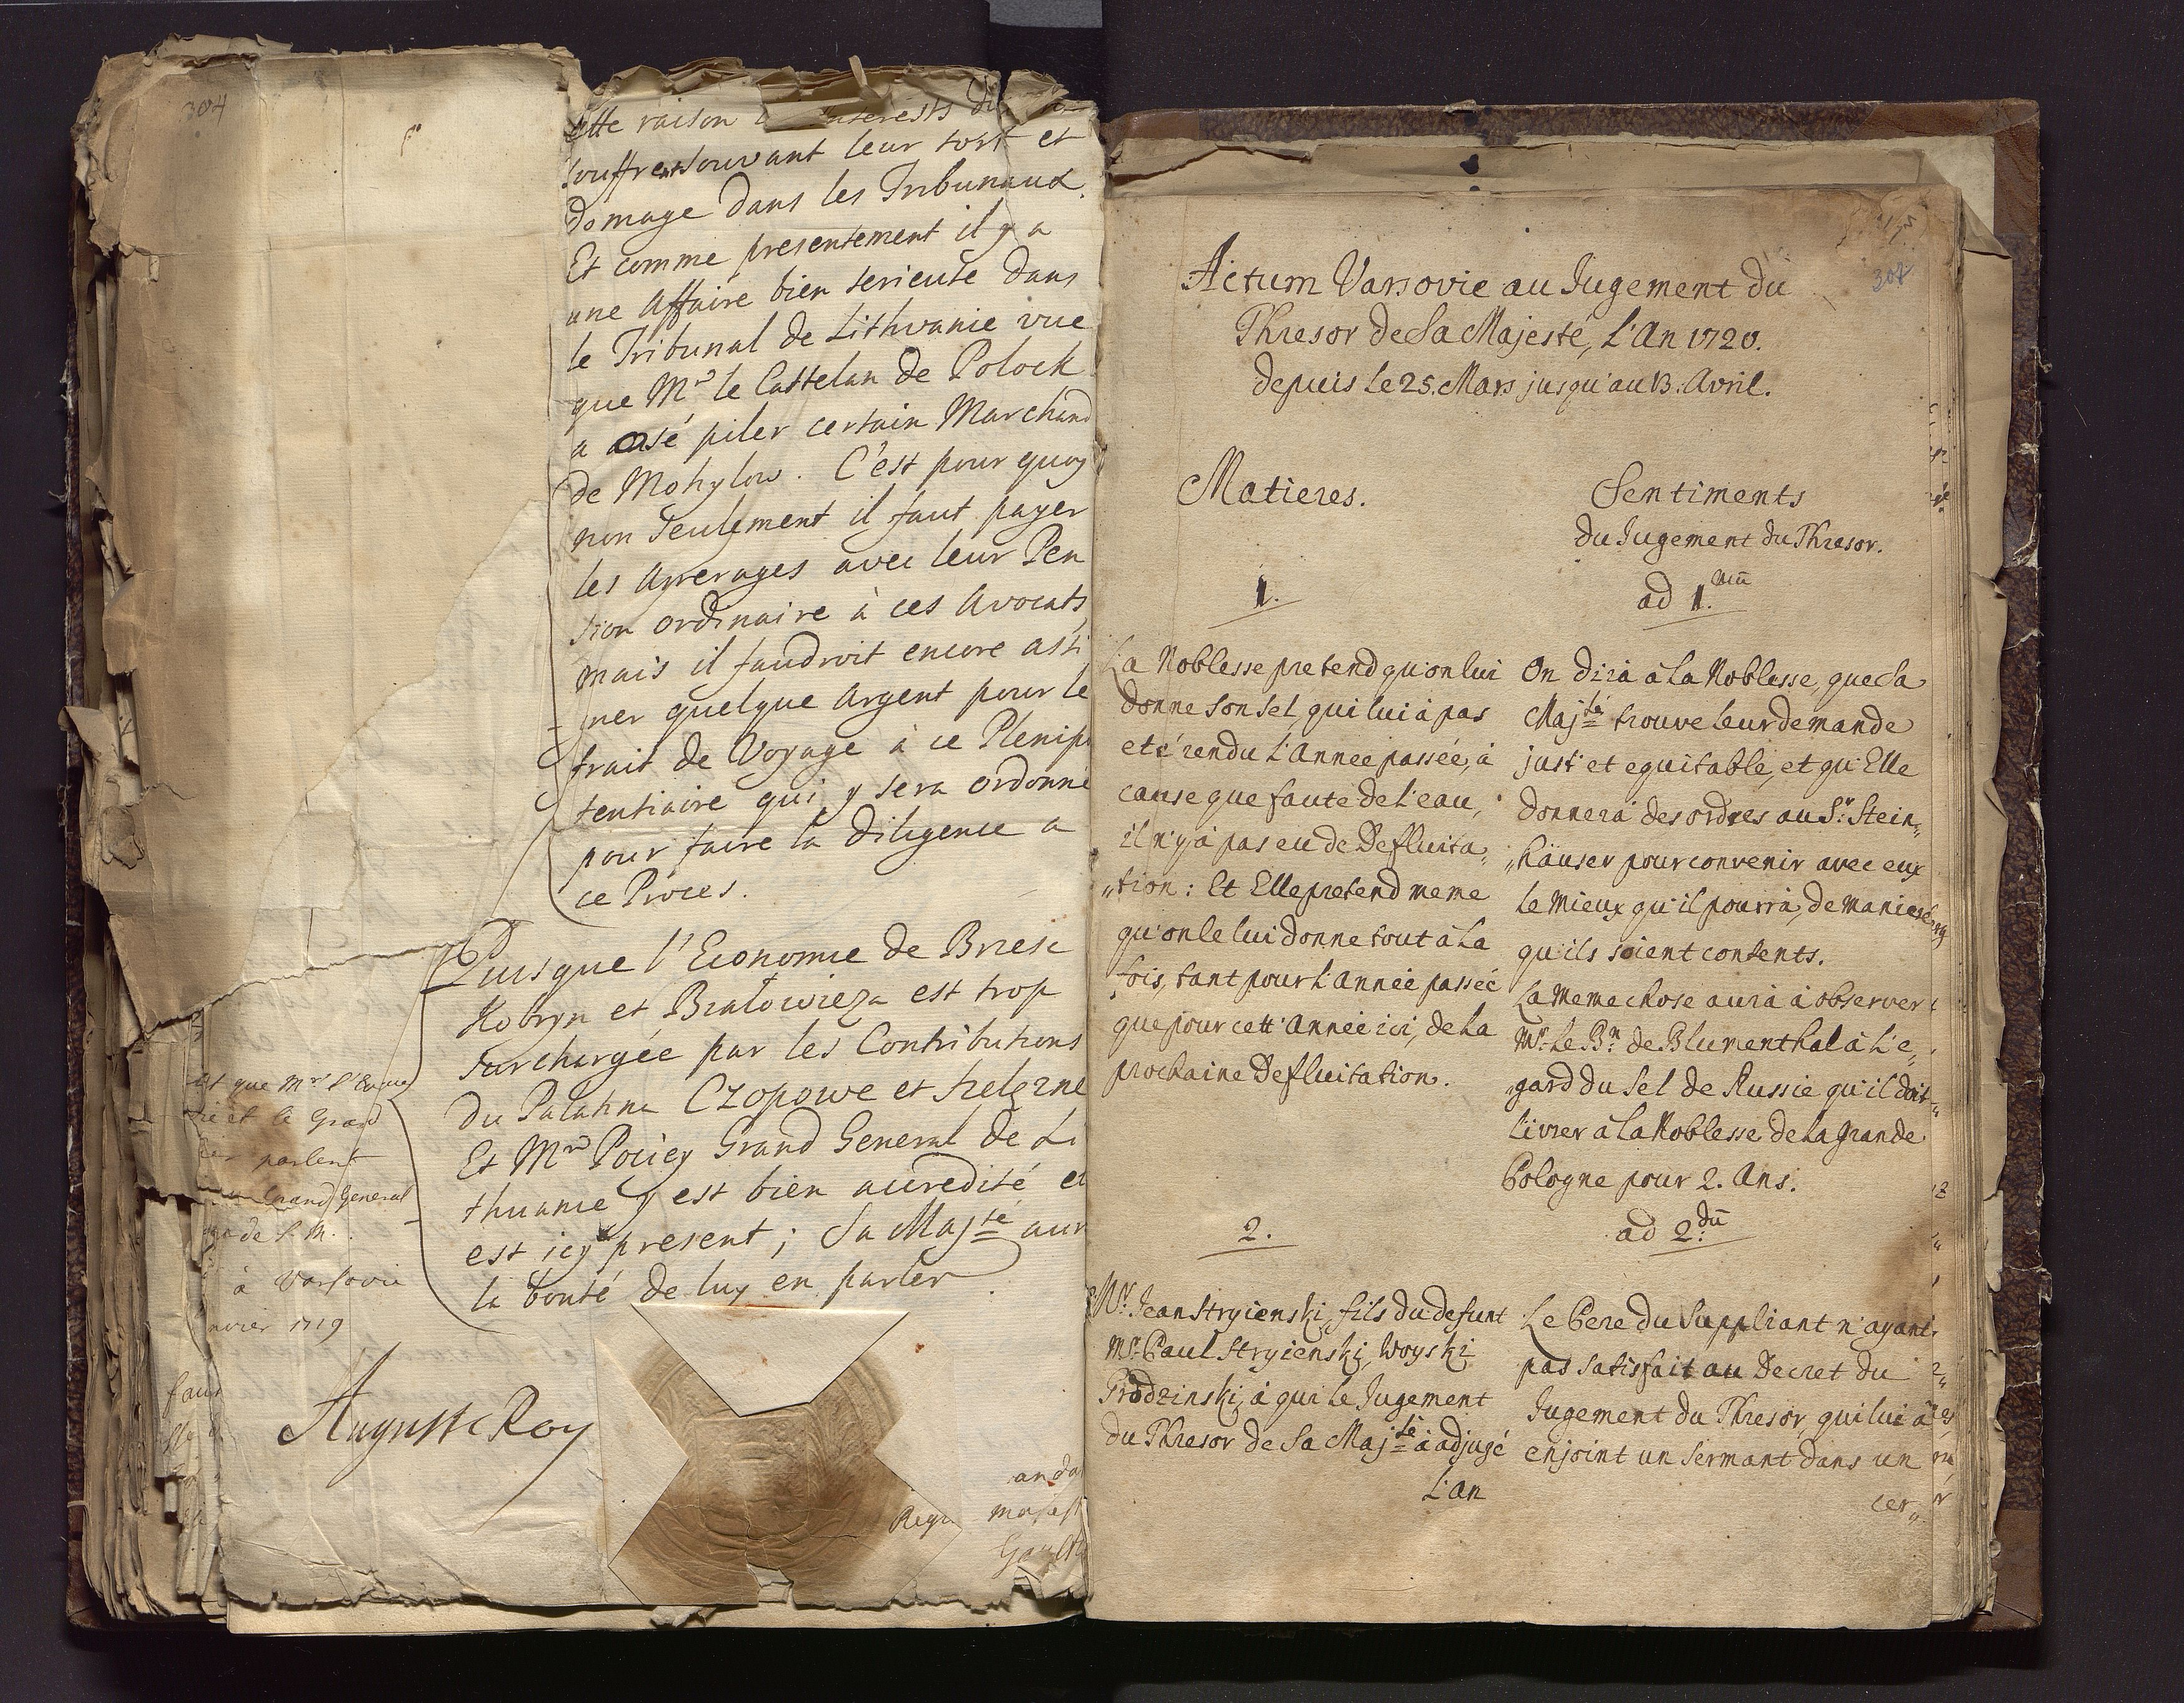 304
raison
souffrent souvant leur tort et
domage dans les Tribunaux.
Et comme presentement il y a
une Affaire bien serieuse dans
le Tribunal de Lithvanie vue
que Mr le Castelan de Polock
a osé piler certain Marchand
de Mohylow. C'est pour quoy
non seulement il faut payer
les Arrerages avec leur Pen
sion ordinaire à ces Avocats,
mais il faudroit encore assi
ner quelque Argent pour le
frait de Voyage à ce Plenip
tentiaire qui y sera ordonné
pour faire la Diligence a
ce Procès.
Puisque l'Economie de Brzesc
Kobryn et Bialowieza est trop
surchargée par les Contributions
du Palatina Czopowe et
Et Mr Pociey Grand General de Li
thuanie y est bien accredité et
est icy present; Sa Majté aur
la bonté de luy en parler
et que Mr
et le Grand
parlent
Grand General
de S. M.
à Varsovie
nvier 1719
Auguste Roy
Actum Varsovie au Jugement du
Thresor de Sa Majesté, L'An 1720.
depuis le 25. Mars jusqu'au 13. Avril.
Matieres.
1.
La Noblesse pretend qu'on lui
donne son Sel, qui lui à pas
eté rendu L'Année passée, à
cause que faute de L'eau,
il n'y à pas eu de Defluita„
„tion: Et Elle pretend meme
qu'on le lui donne tout à La
fois, tant pour L'année passée
que pour cett'Année ici, de La
prochaine Defluitation.
2.
Mr. Jean Stryienski, fils du defunt
Mr. Paul Stryienski, Woyski
Grodzinski, à qui le Jugement
du Thresor de Sa Majté à adjugé
L'An
Sentiments
du Jugement du Thresor.
ad 1.mũ
On dira à La Noblesse, que Sa
Majté trouve leur demande
just' et equitable, et qu'Elle
donnera des ordres au Sr. Stein„
„häuser pour convenir avec eux
le Mieux qu'il pourra, de maniere
qu'ils soient contents.
La Meme chose aura à observer
Mr. Le Bn. de Blumenthal à L'e„
gard du Sel de Russie qu'il doit
livrer à La Noblesse de La Grande
Pologne pour 2. Ans.
ad 2.dũ
Le Pere du Suppliant n'ayant
pas satisfait au Decret du
Jugement du Thresor, qui lui à
enjoint un Sermant dans un
cer„